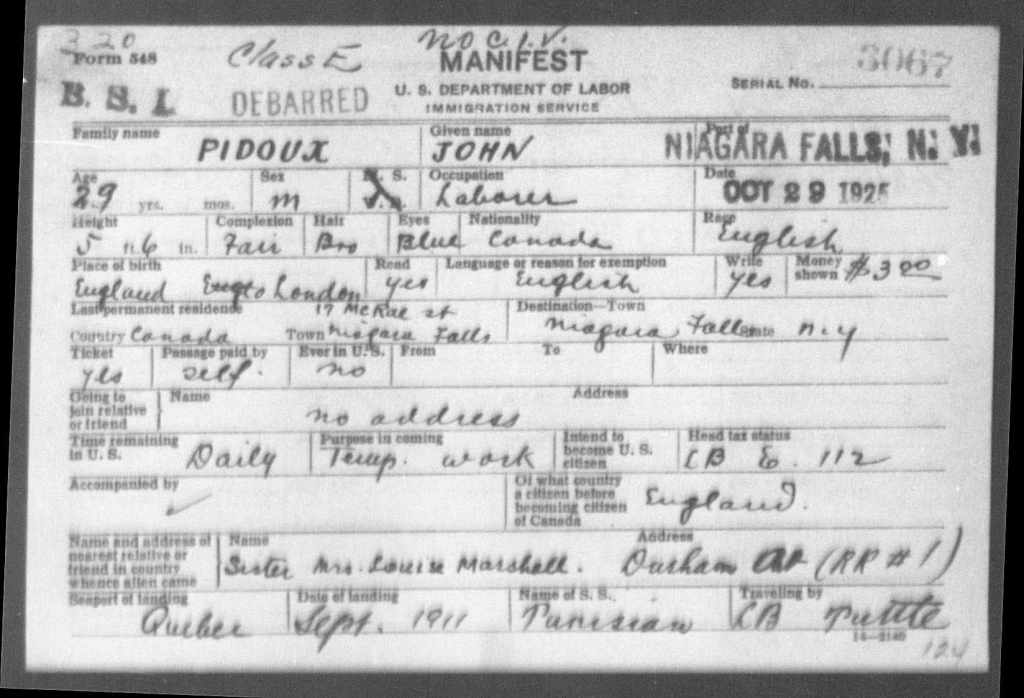 320
Form 548
Class E
No C.I.V.
MANIFEST
3067
B. S. I.
DEBARRED
U. S. DEPARTMENT OF LABOR
IMMIGRATION SERVICE
SERIAL No.
Family name PIDOUX
Given name JOHN
Port of NIAGARA FALLS, N. Y.
Age 29 yrs. mos.
Sex M
M. S.
Occupation Laborer
Date OCT 29 1925
Height 5 ft. 6 in.
Complexion Fair
Hair Bro
Eyes Blue
Nationality Canada
Race English
Place of birth England London
Read yes
Language or reason for exemption English
Write yes
Money shown $3 00
Last permanent residence 17 McRae st
Country Canada Town Niagara Falls
Destination—Town Niagara Falls State N.Y
Ticket yes
Passage paid by self.
Ever in U. S. no
From
To
Where
Going to join relative or friend
Name
Address
no address
Time remaining in U. S. Daily
Purpose in coming Temp. work
Intend to become U. S. citizen
Head tax status CB E. 112
Accompanied by ✓
Of what country a citizen before becoming citizen of Canada England.
Name and address of nearest relative or friend in country whence alien came
Name Sister Mrs. Louise Marshall.
Address Durham (RR #1)
Seaport of landing Quebec
Date of landing Sept. 1911
Name of S. S. Tunisian
Traveling by CB Tuttle
14—2140
124